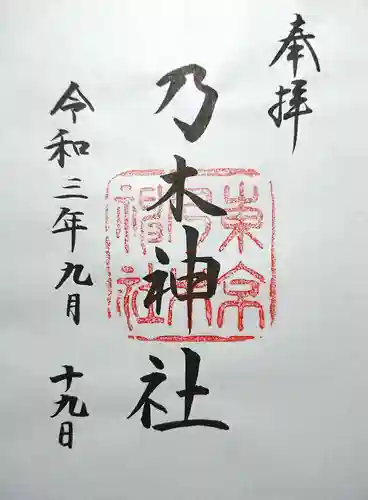 奉拝
乃木神社
東京乃木神社
令和三年九月十九日